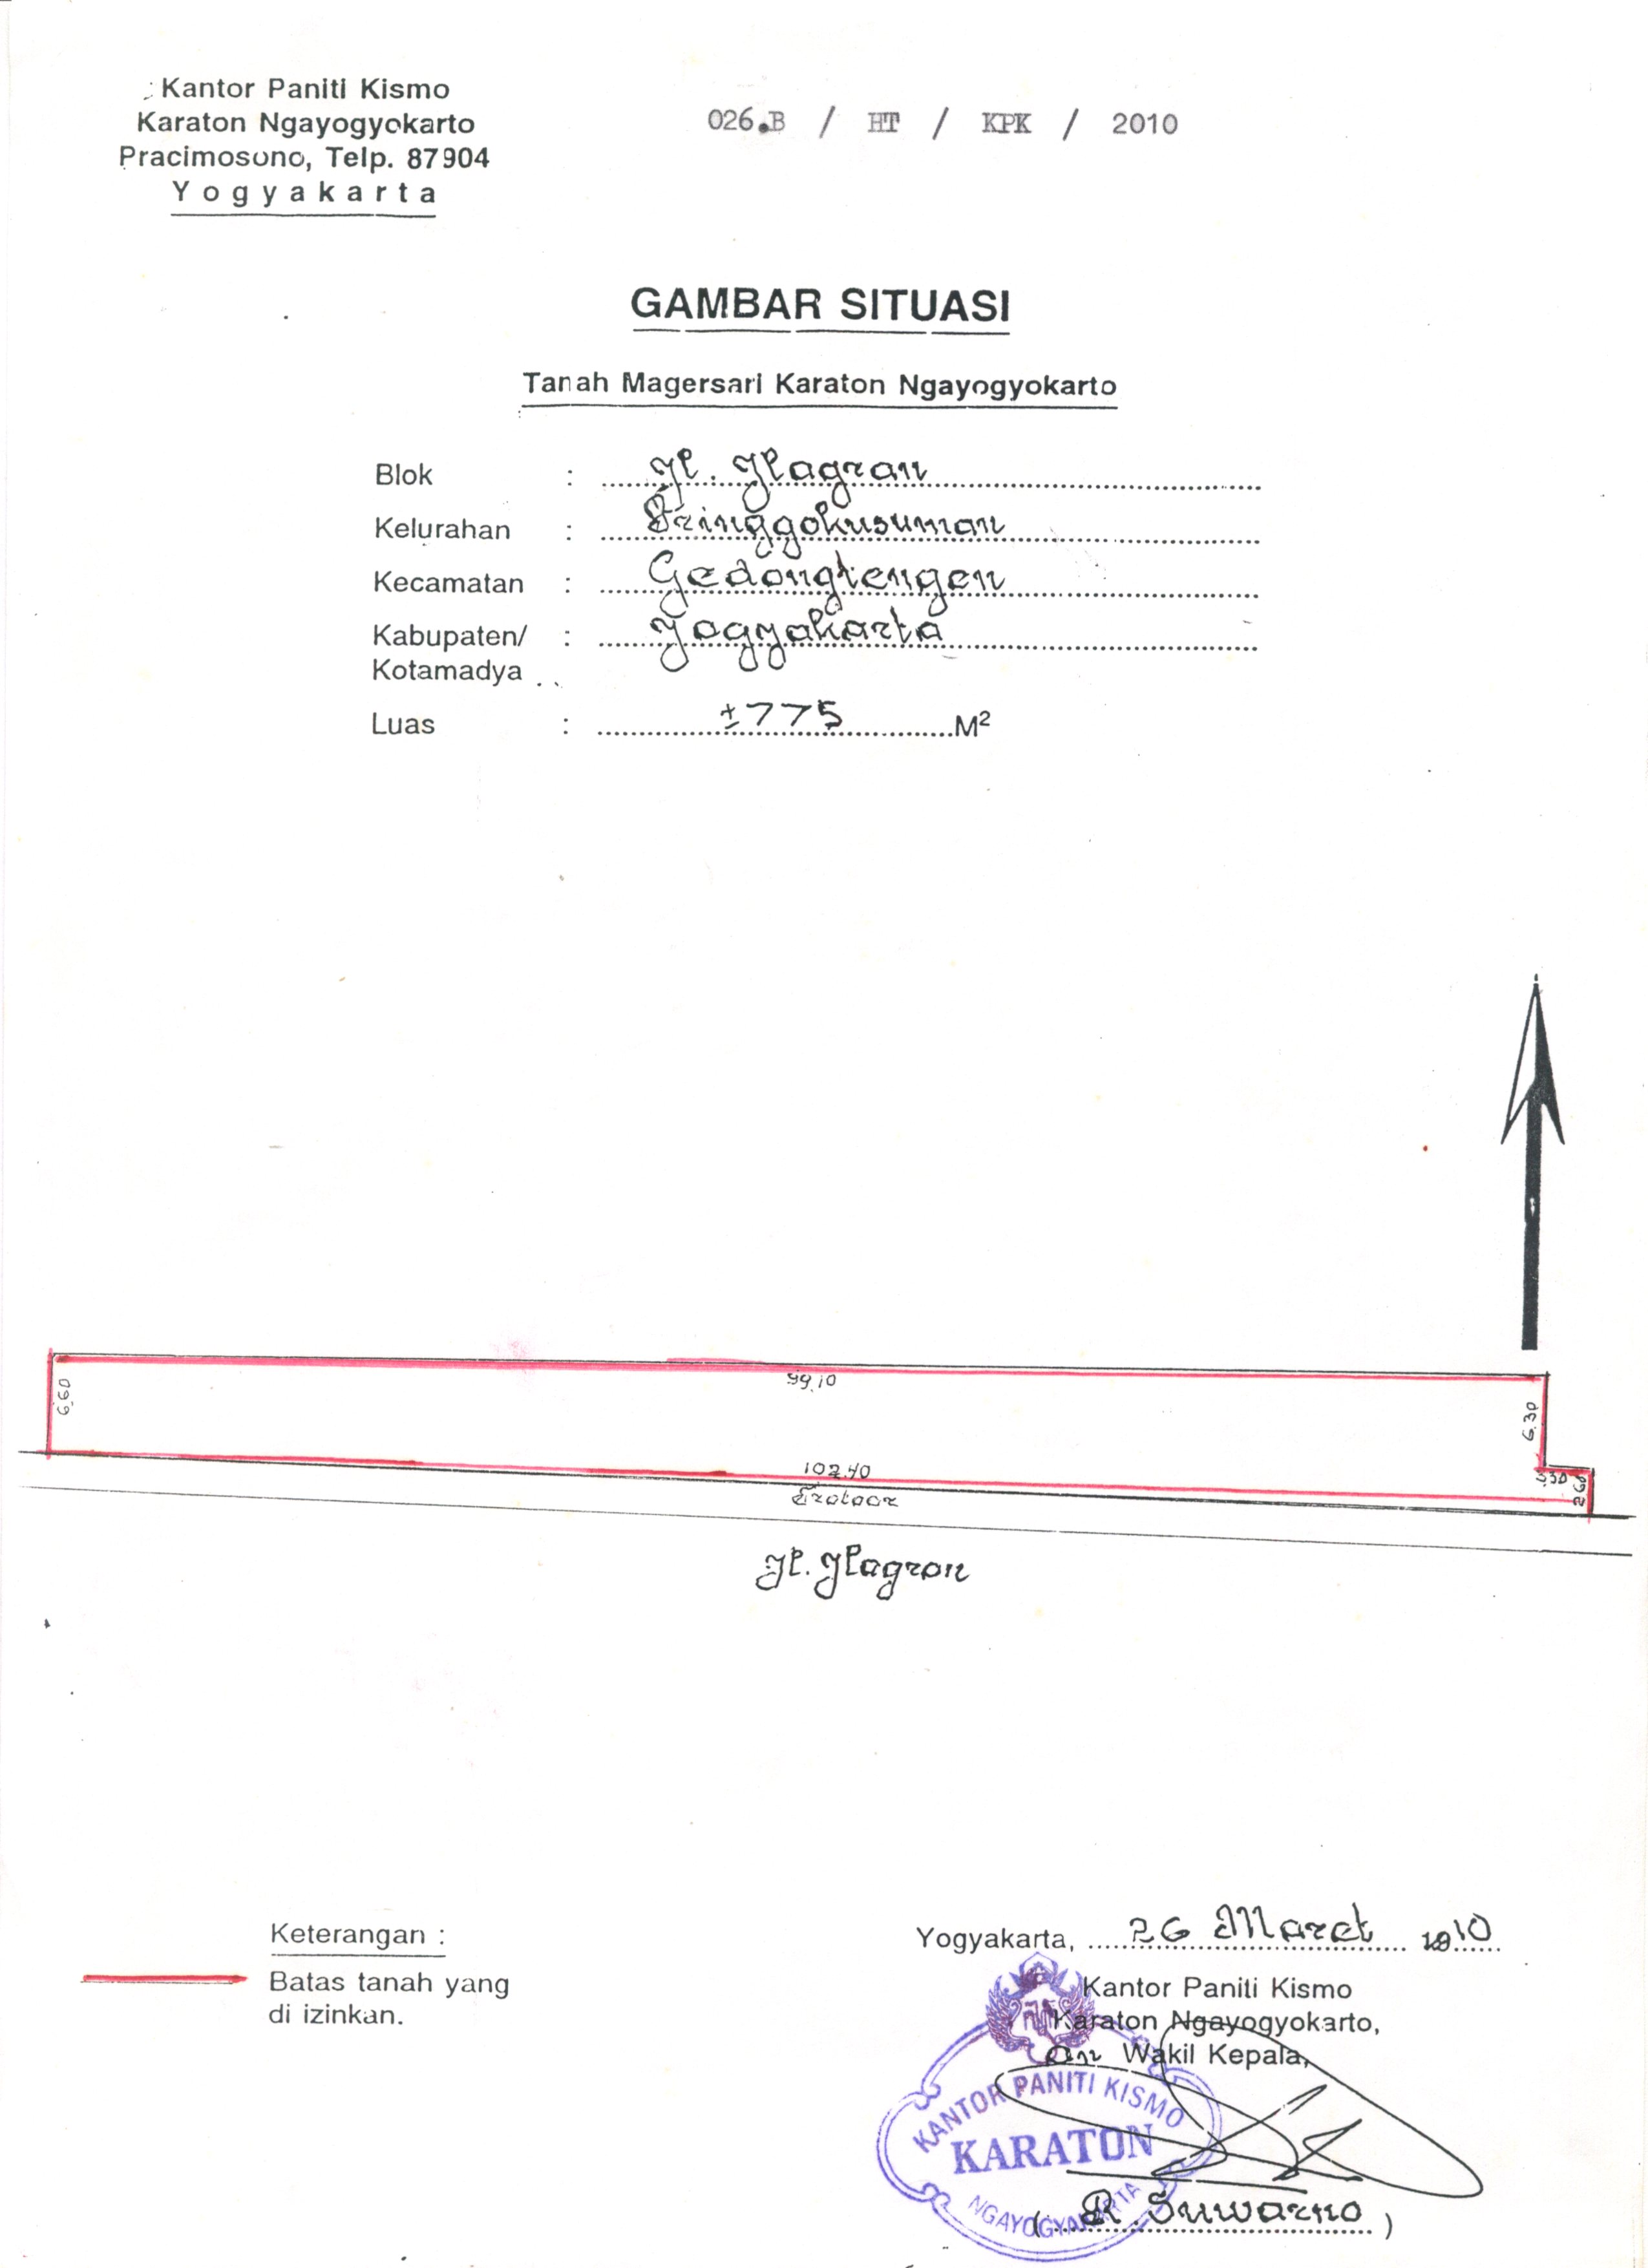 Kantor Paniti Kismo
Karaton Ngayogyokarto
Pracimosono, Telp. 87904
Yogyakarta
026.B / HT / KPK / 2010
GAMBAR SITUASI
Tanah Magersari Karaton Ngayogyokarto
Blok : Jl. Jlagran
Kelurahan : Pringgokusuman
Kecamatan : Gedongtengen
Kabupaten/ : Yogyakarta
Kotamadya
Luas : ±775 M²
99,10
6,60
6.30
102.40
3.30
2.60
Trotoar
Jl. Jlagran
Keterangan :
Batas tanah yang
di izinkan.
Yogyakarta, 26 Maret 2010
Kantor Paniti Kismo
Karaton Ngayogyokarto,
An Wakil Kepala,
KANTOR PANITI KISMO
KARATON
NGAYOGYAKARTA
( R. Suwarno )